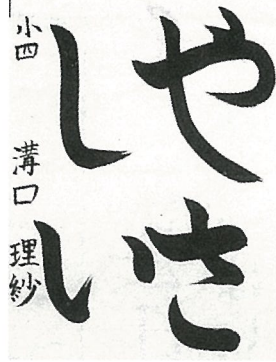 やさ
しい
小四 溝口 理紗